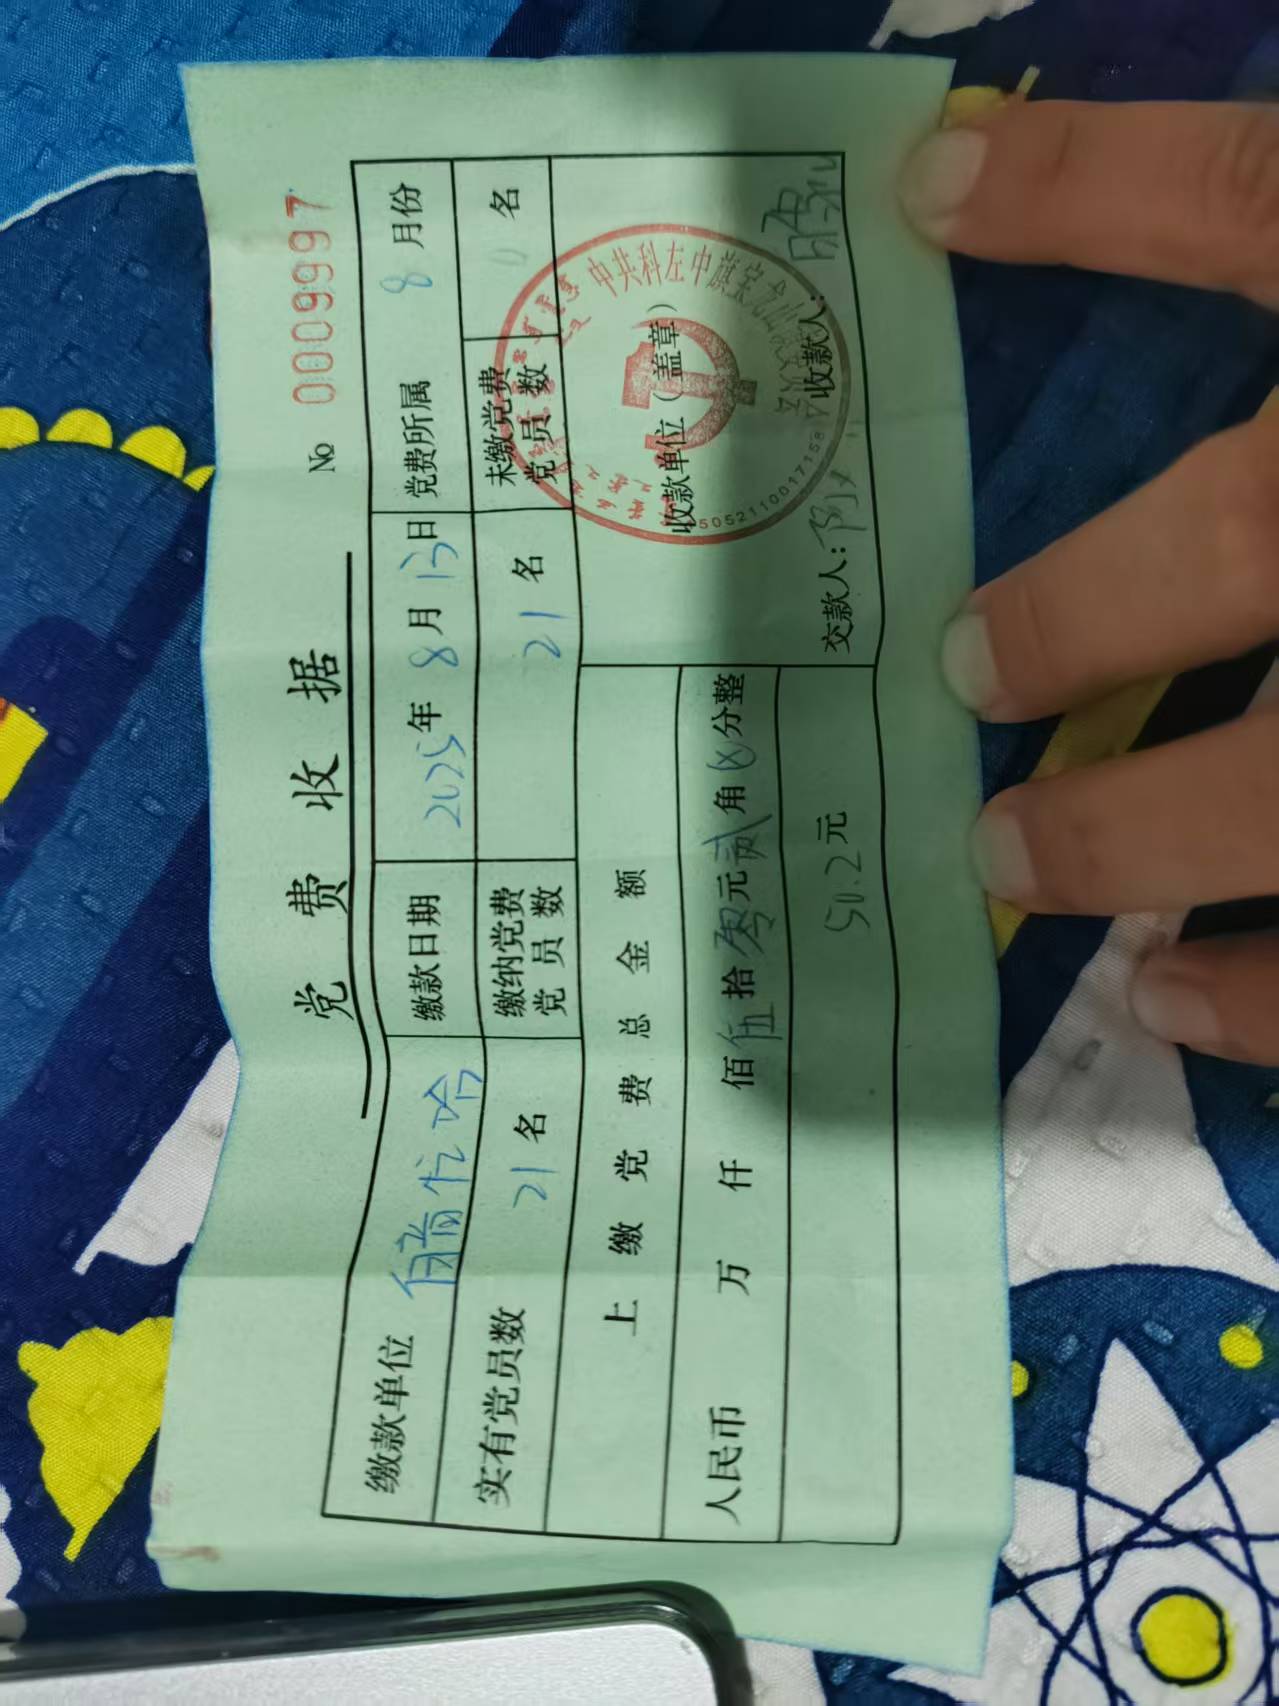 党费收据
№ 0009997
缴款单位 缴款日期 2025年8月13日 党费所属 8月份
实有党员数 21名 缴纳党费党员数 21名 未缴党费党员数 0名
上缴党费总金额
人民币 万 仟 佰 伍拾零元贰角 分整
50.2元
中共科左中旗宝龙山
收款单位（盖章）
1505211001715
交款人： 收款人：